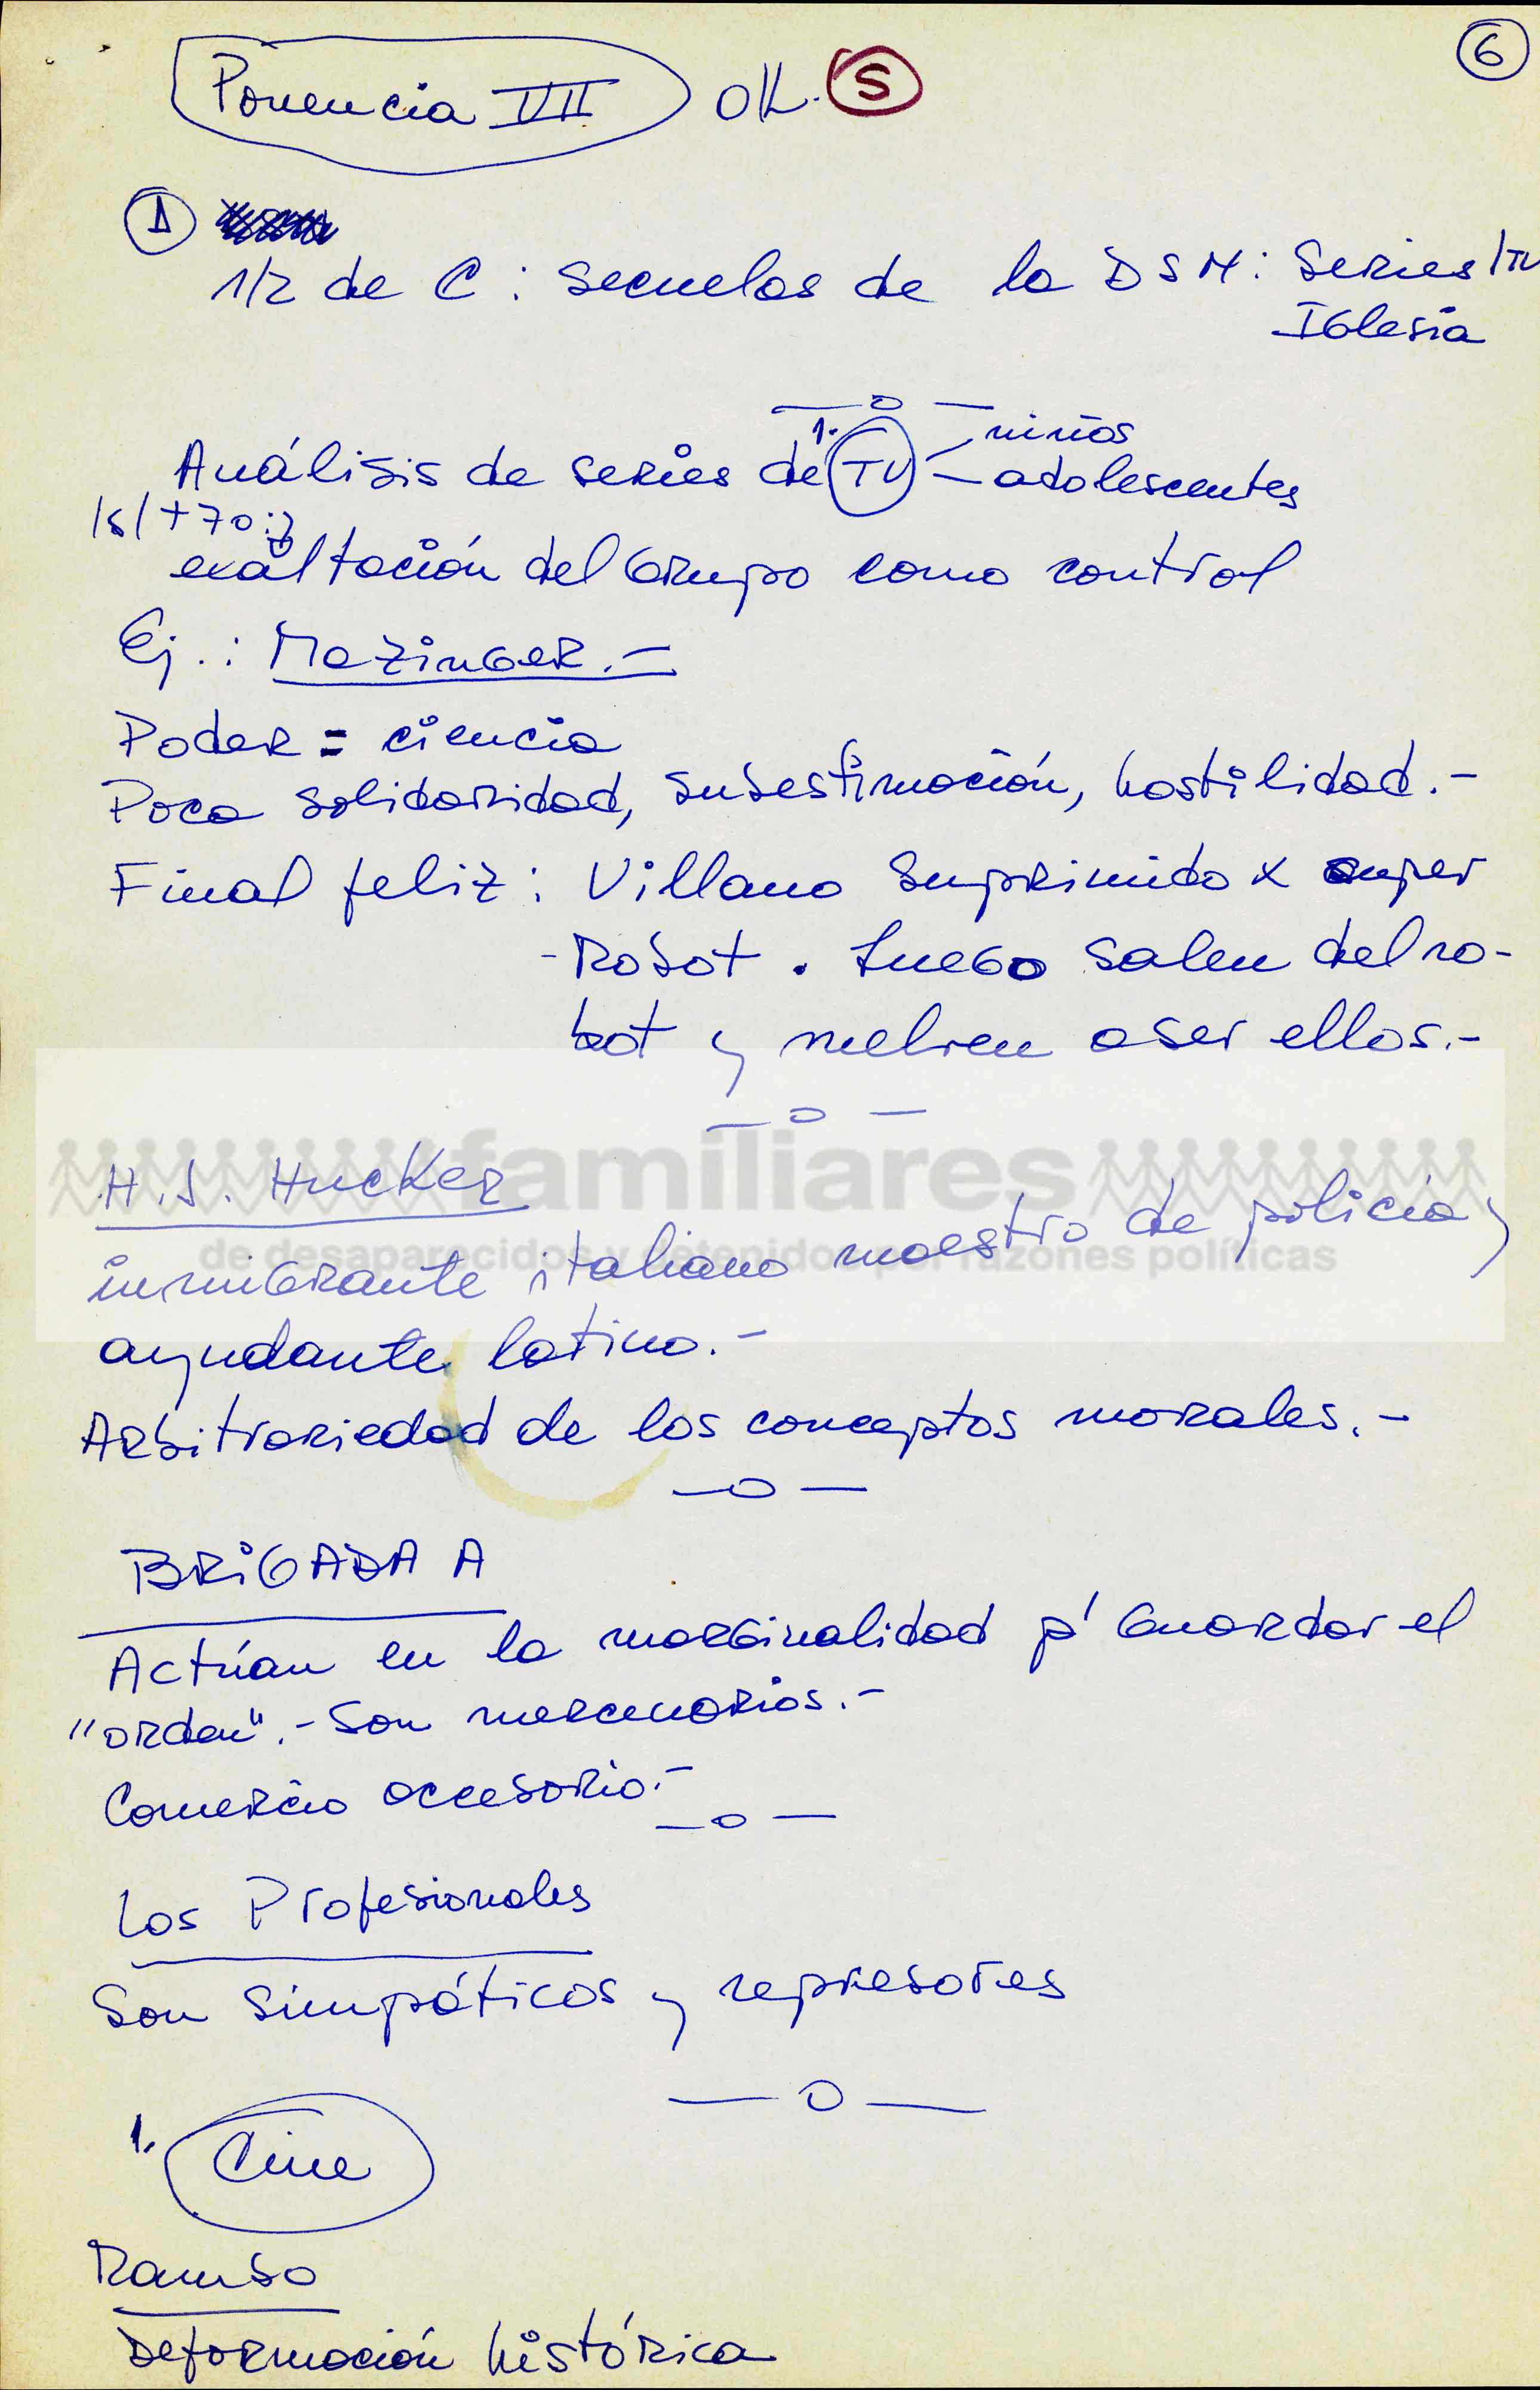 6
Ponencia VII OK. S
1
1/2 de C: Secuelas de la DSN: Series/TV
Iglesia
— o —
niños
Análisis de series de 1. TV — adolescentes
/s/ + 70:
exaltación del Grupo como control
Ej.: Mazinger.-
Poder = ciencia
Poca solidaridad, subestimación, hostilidad.-
Final feliz: Villano suprimido x super
-Robot. Luego salen del ro-
bot y vuelven a ser ellos.-
— o —
familiares
de desaparecidos y detenidos por razones políticas
H.J. Hucker
inmigrante italiano maestro de policía y
ayudante latino.-
Arbitrariedad de los conceptos morales.-
— o —
BRIGADA A
Actúan en la marginalidad p' Guardar el
"orden".- Son mercenarios.-
Comercio accesorio.-
— o —
Los Profesionales
Son simpáticos y represores
— o —
1. Cine
Rambo
Deformación histórica